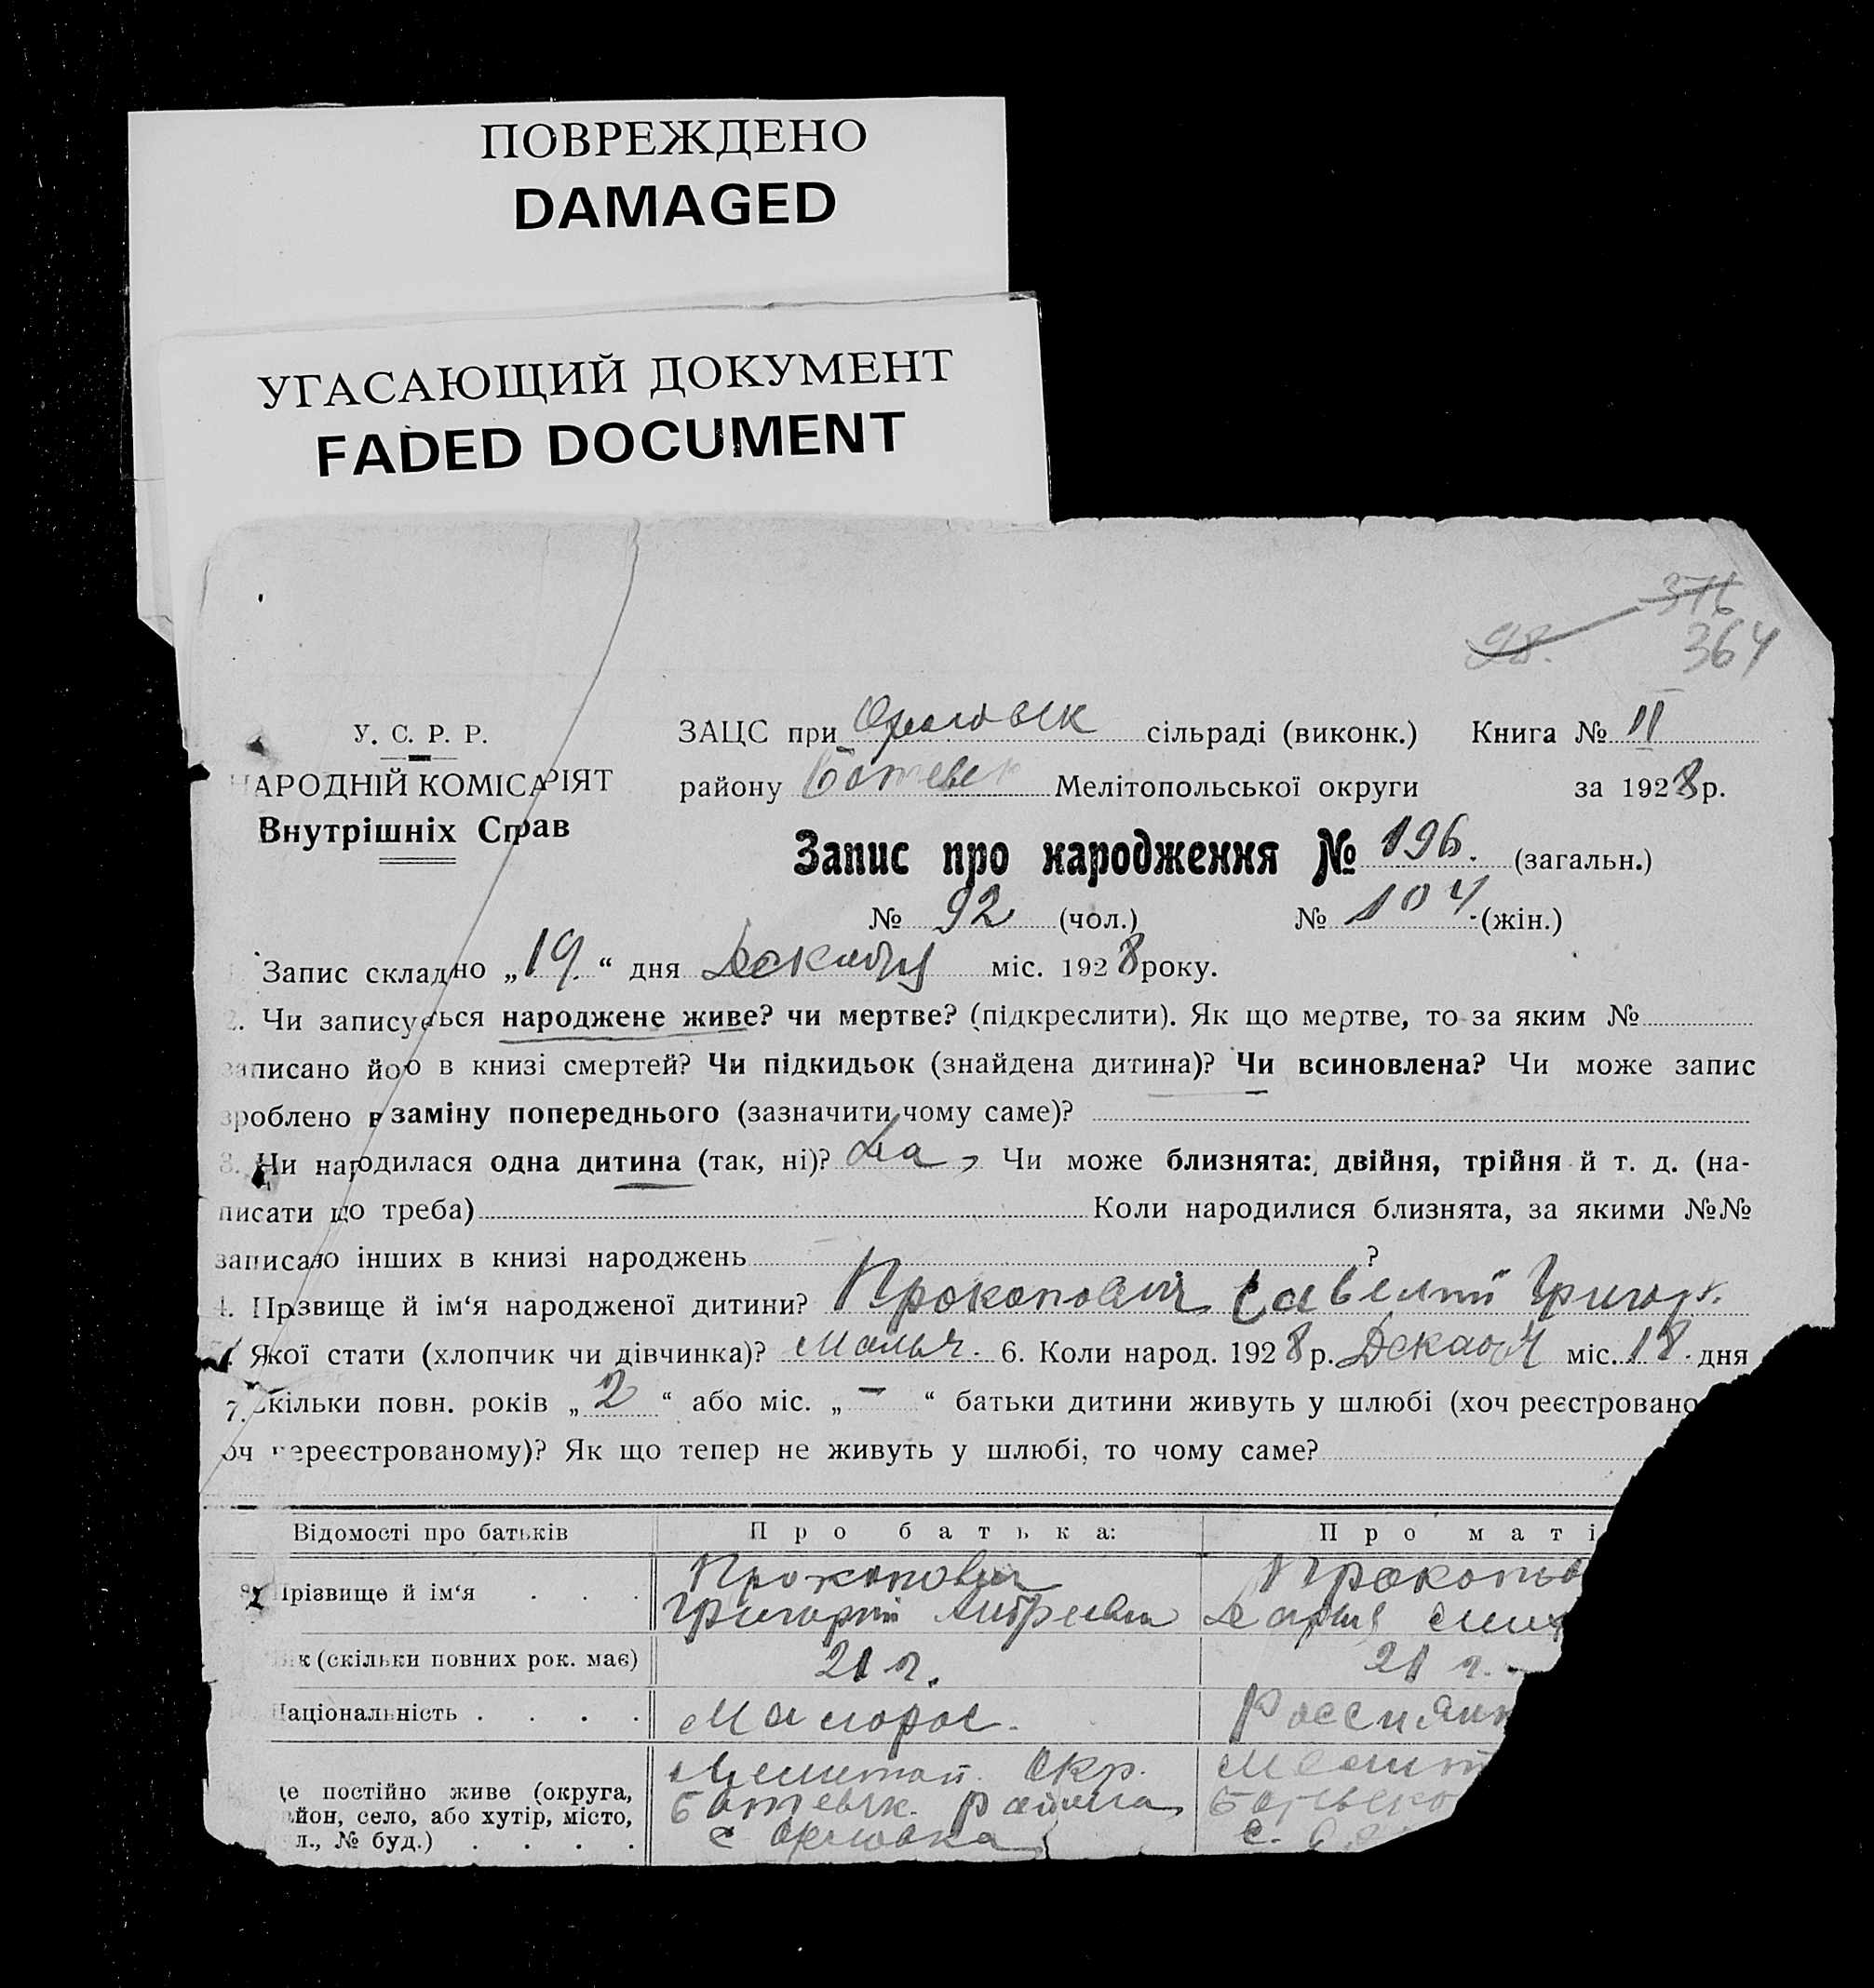 ПОВРЕЖДЕНО
DAMAGED
УГАСАЮЩИЙ ДОКУМЕНТ
FADED DOCUMENT
376
98. 364
У. С. Р. Р.
НАРОДНІЙ КОМІСАРІЯТ
Внутрішніх Справ
ЗАЦС при Орловск сільраді (виконк.) Книга № II
району Ботевск Мелітопольської округи за 1928 р.
Запис про народження № 196. (загальн.)
№ 92 (чол.) № 104 (жін.)
Запис складно „19.“ дня Декабря міс. 1928 року.
2. Чи записується народжене живе? чи мертве? (підкреслити). Як що мертве, то за яким №
записано його в книзі смертей? Чи підкидьок (знайдена дитина)? Чи всиновлена? Чи може запис
зроблено в заміну попереднього (зазначити чому саме)?
3. Чи народилася одна дитина (так, ні)? Да, Чи може близнята: двійня, трійня й т. д. (на-
писати що треба) Коли народилися близнята, за якими №№
записано інших в книзі народжень ?
4. Прізвище й ім‘я народженої дитини? Прокопович Савелий Григор.
Якої стати (хлопчик чи дівчинка)? Мальч. 6. Коли народ. 1928 р. Декабр міс. 18. дня
7. Скільки повн. років „2“ або міс. „—“ батьки дитини живуть у шлюбі (хоч реєстровано
оч нереєстрованому)? Як що тепер не живуть у шлюбі, то чому саме?
Відомості про батьків Про батька: Про маті
Прізвище й ім‘я . . . Прокопович Прокопов
Григорий Андреевич Дария
Вік (скільки повних рок. має) 21 г. 21 г.
Національність . . . . Малорос. Россиянк
Мелитоп. Окр. Мелит
де постійно живе (округа,
район, село, або хутір, місто, Ботевск. района Ботевско
л., № буд.) . . . . с Орловка с.